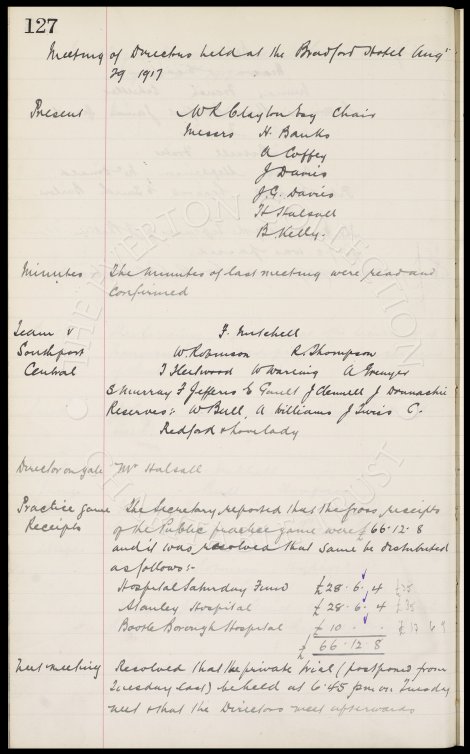 127
Meeting of Directors held at the Bradford Hotel Augt
29 1917
Present W R Clayton Esq Chair
Messrs H. Banks
A Coffey
J Davies
J. G. Davies
H Halsall
B Kelly.
Minutes The minutes of last meeting were read and
confirmed
Team v F. Mitchell
Southport W. Robinson R. Thompson
Central T Fleetwood W Wareing A Grenyer
E Murray F Jefferis E Gault J Clennell J Donnachie
Reserves:- W Bull, A Williams J Twiss C.
Redford & Lovelady
Director on gate Mr Halsall
Practice game The Secretary reported that the gross receipts
Receipts of the Public practice game were £66.12.8
and it was resolved that same be distributed
as follows:-
Hospital Saturday Fund £28.6.4 £25
Stanley Hospital £28.6.4 £25
Bootle Borough Hospital £10 . . £13 6 9
£66.12.8
Next meeting Resolved that the private trial (postponed from
Tuesday last) be held at 6.45 pm on Tuesday
next & that the Directors meet afterwards
© THE EVERTON COLLECTION
CHARITABLE TRUST